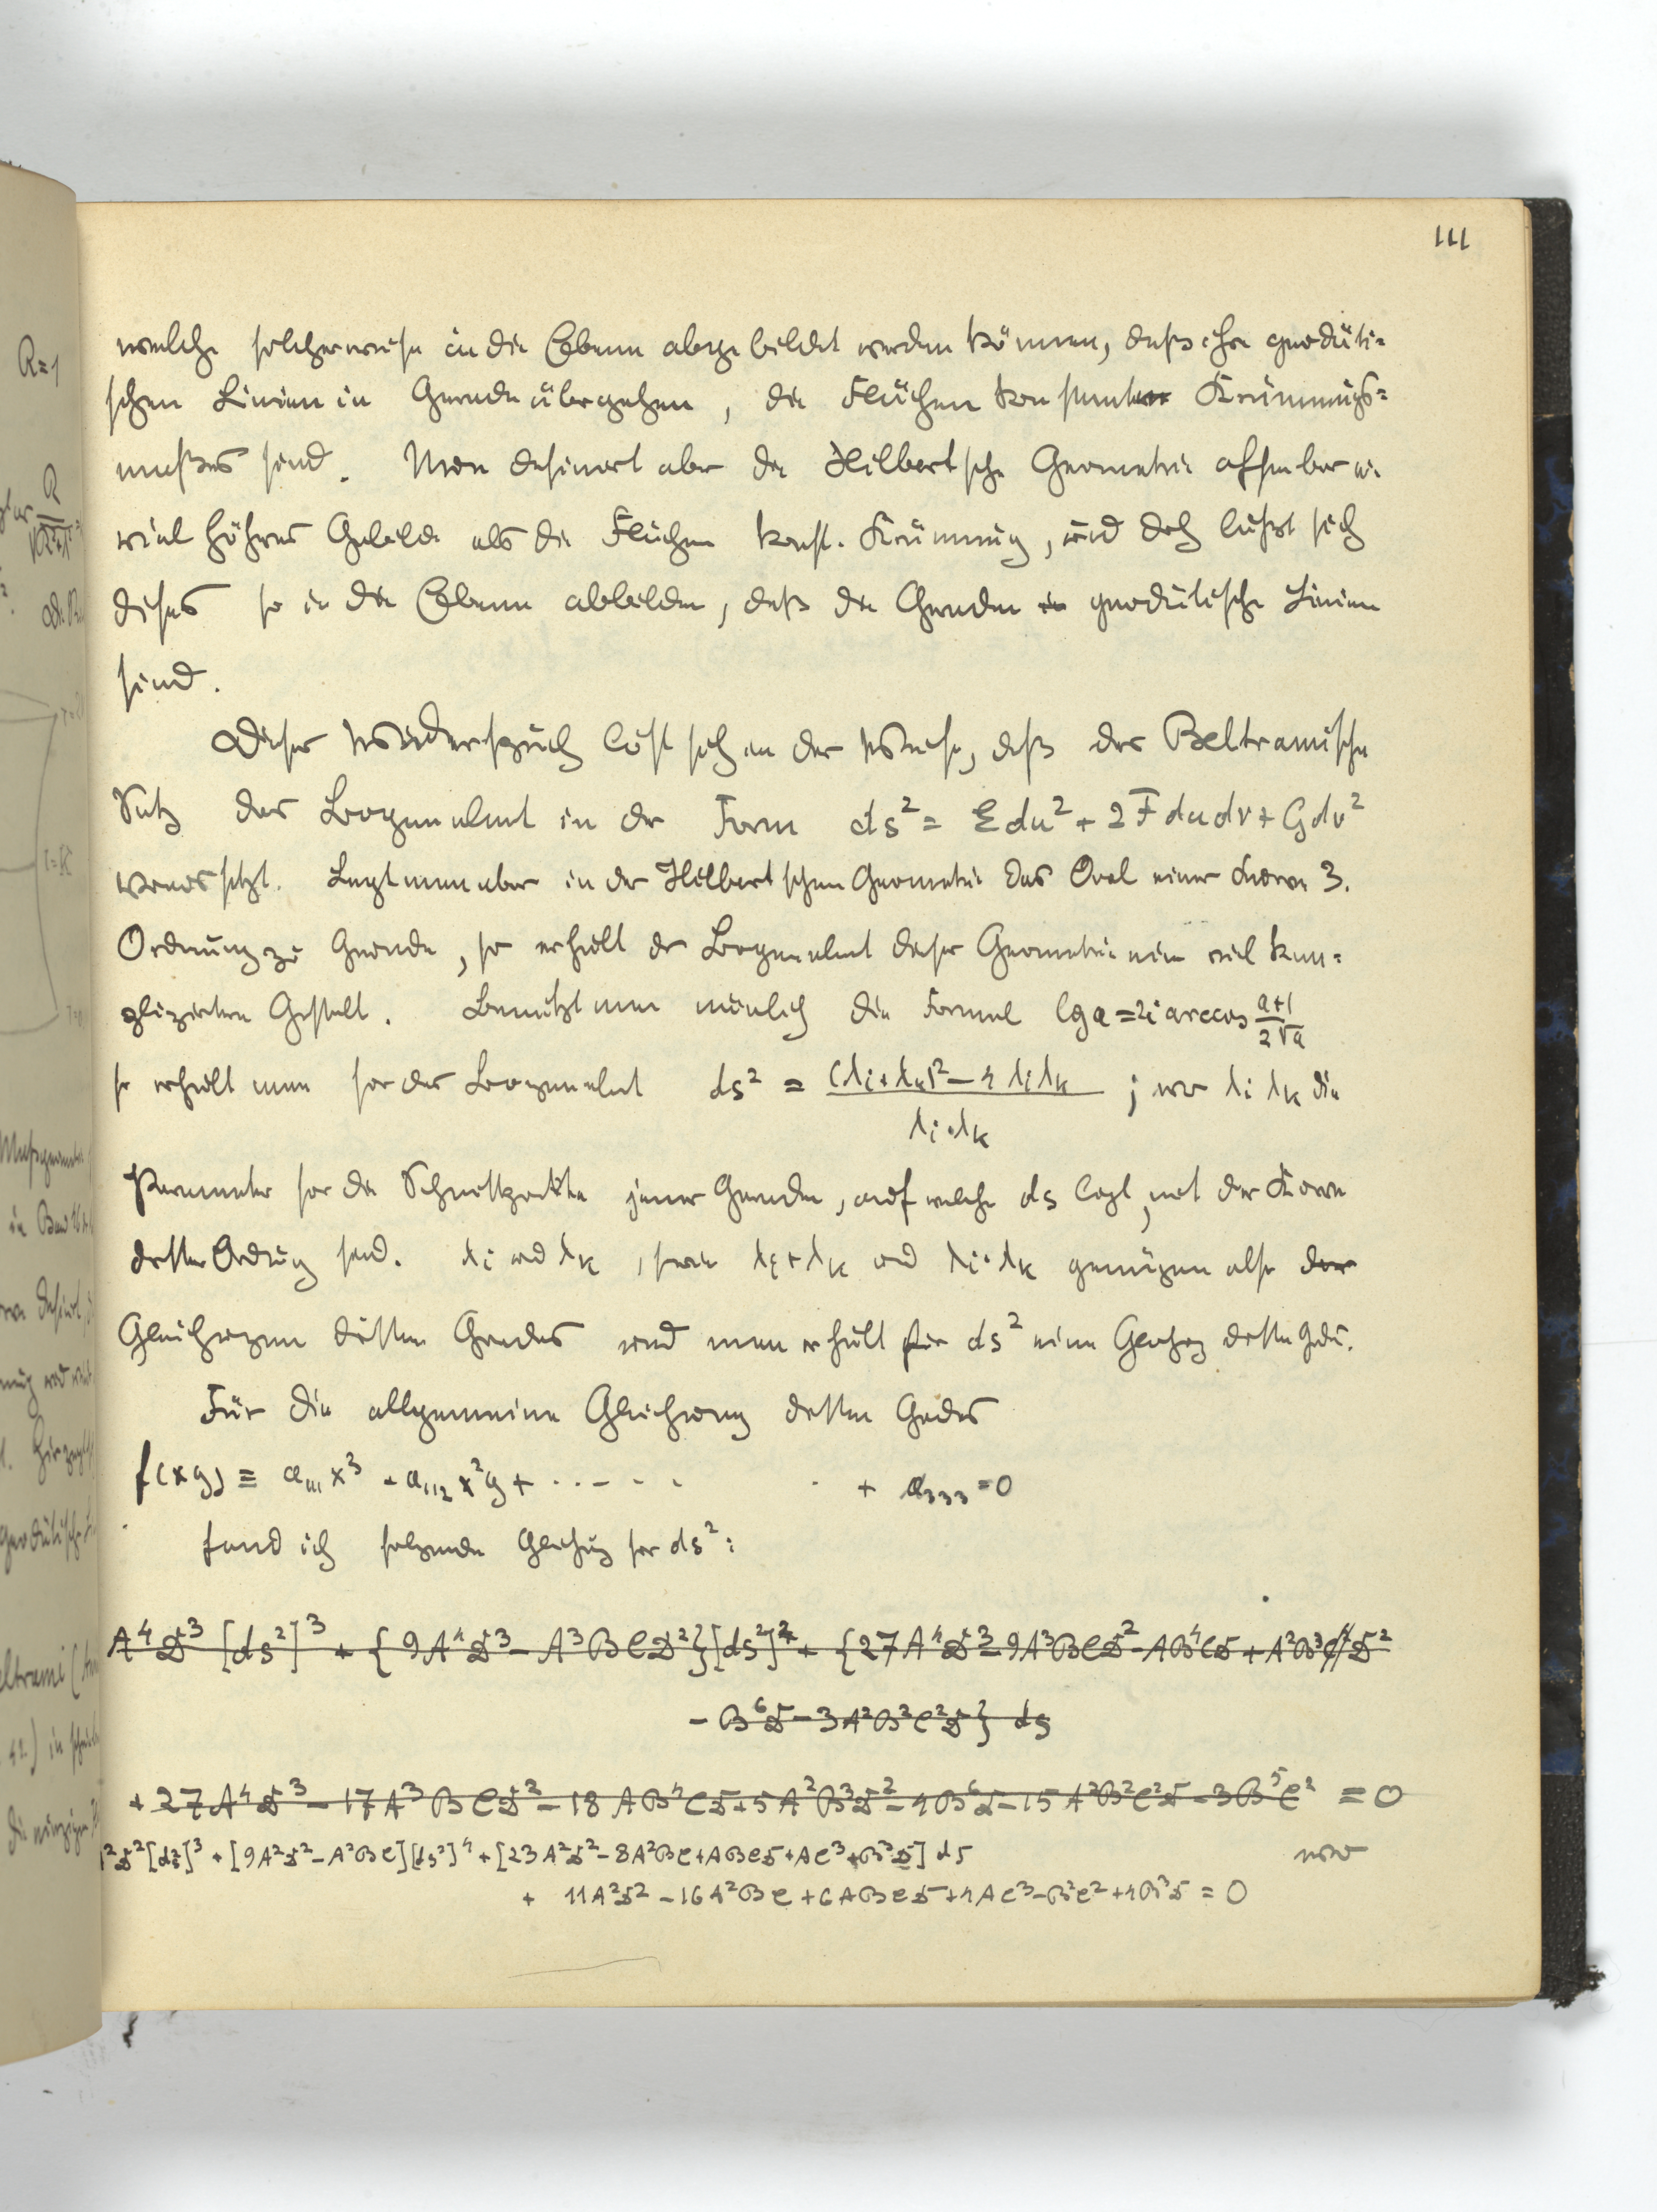 111
welche solcherweise in die Ebene abgebildet werden können, daß ihre geodäti-
schen Linien in Gerade übergehen, die Flächen konstanter Krümmungs-
maßes sind. Nun definiert aber die Hilbertsche Geometrie offenbar ein
viel höheres Gebilde als die Flächen konst. Krümmung, und doch läßt sich
dieses so in die Ebene abbilden, daß die Geraden geodätische Linien
sind.
Dieser Widerspruch löst sich in der Weise, daß der Beltramische
Satz das Bogenelement in der Form ds² = Edu² + 2Fdudv + Gdv²
voraussetzt. Legt man aber in der Hilbertschen Geometrie das Oval einer Kurve 3.
Ordnung zu Grunde, so erhält das Bogenelement dieser Geometrie eine viel kom-
plizirtere Gestalt. Benützt man nämlich die Formel lg a = 2i arccos (a+1)/(2√a)
so erhält man für das Bogenelement ds² = ((λi+λk)² - 4λiλk)/(λi·λk) ; wo λi λk die
Parameter für die Schnittpunkte jener Geraden, auf welcher ds liegt, mit der Kurve
dritter Ordnung sind. λi und λk, sowie λi+λk und λi·λk genügen also der
Gleichungen dritten Grades und man erhält für ds² eine Gleichung dritten Grades.
Für die allgemeine Gleichung dritten Grades
f(xy) ≡ a₁₁₁x³ + a₁₁₂x²y + ........ + a₃₃₃ = 0
fand ich folgende Gleichung für ds²:
A⁴D³[ds²]³ + {9A⁴D³ - A³BCD²}[ds²]² + {27A⁴D³ - 9A³BCD² - AB⁴CD + A²B³D²
- B⁶D - 3A²B²C²D} ds
+ 27A⁴D³ - 17A³BCD² - 18AB⁴CD + 5A²B³D² - 4B⁶D - 15A²B²C²D - 3B⁵C² = 0
A²D²[ds²]³ + [9A²D² - A²BC][ds²]⁴ + [23A²D² - 8A²BC + ABCD + AC³ + B³D] ds wo
+ 11A²D² - 16A²BC + 6ABCD + 4AC³ - B²C² + 4B³D = 0